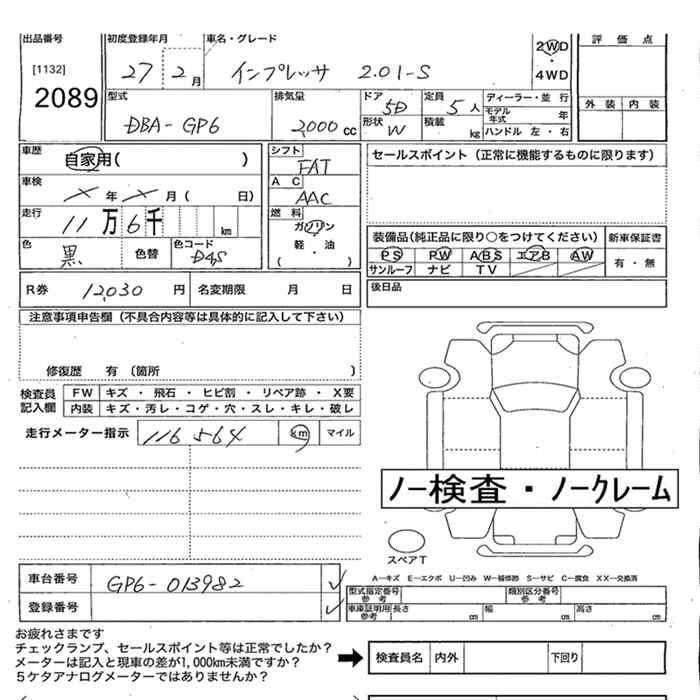 出品番号 初度登録年月 車名・グレード 2WD 評価点
[1132] 27年 2月 インプレッサ 2.0I-S ・
2089 4WD
型式 排気量 ドア 5D 定員 5人 ディーラー・並行 外装 内装
DBA-GP6 2,000cc 形状 W 積載 kg モデル年式 年
ハンドル 左・右
車歴 自家用( ) シフト FAT セールスポイント(正常に機能するものに限ります)
車検 ×年×月( 日) AC AAC
走行 11万6千 km 燃料 ガソリン
色 黒 色替 色コード D4S 軽・油 ( )
装備品(純正品に限り○をつけてください) 新車保証書
PS PW ABS エアB AW 有・無
サンルーフ ナビ TV
R券 12,030円 名変期限 月 日 後日品
注意事項申告欄(不具合内容等は具体的に記入して下さい)
修復歴 有〔箇所 〕
検査員記入欄 FW キズ・飛石・ヒビ割・リペア跡・X要
内装 キズ・汚レ・コゲ・穴・スレ・キレ・破レ
走行メーター指示 116564 km マイル
ノー検査・ノークレーム
スペアT
A−キズ E−エクボ U−凹み W−補修跡 S−サビ C−腐食 XX−交換済
車台番号 GP6-013982 型式指定番号参考 類別区分番号参考
登録番号 車庫証明用参考 長さ cm 幅 cm 高さ cm
お疲れさまです
チェックランプ、セールスポイント等は正常でしたか?
メーターは記入と現車の差が1,000km未満ですか?
5ケタアナログメーターではありませんか?
検査員名 内外 下回り